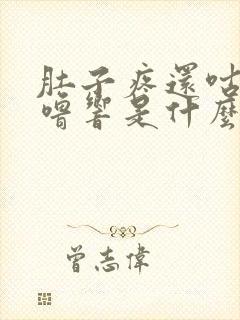 肚子疼還咕
嚕響是什麼
曾志偉